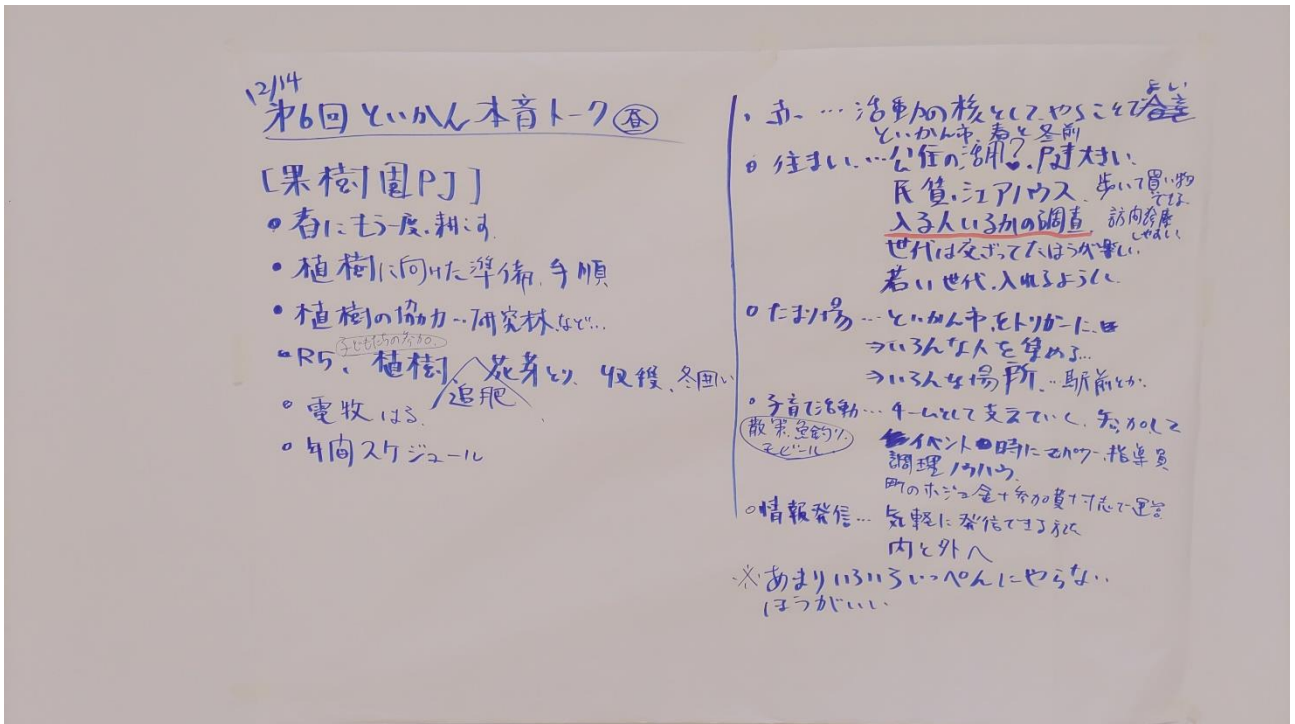 12/14
第6回 といかん本音トーク 昼
[果樹園PJ]
• 春にもう一度、耕す
• 植樹に向けた準備、手順
• 植樹の協力…研究林など…
子どもたちの参加
• R5、植樹、花芽とり、収穫、冬囲い
追肥
• 電牧はる
• 年間スケジュール
• 市…活動の核として、やることで合意
よい
といかん市、春と冬前
• 住まい…公住の活用?、大きい
民賃・シェアハウス、歩いて買い物
できる
入る人いるかの調査、訪問診療
しやすい
世代は交ざってたほうが楽しい
若い世代、入れるように
• たまり場…といかん市をトリガーに、
⇒いろんな人を集める…
⇒いろんな場所…駅前とか
• 子育て活動…チームとして支えていく、参加して
散策、魚釣り、
モビール
イベント時にマンパワー、指導員
調理ノウハウ
町のホジョ金+参加費+寸志で運営
• 情報発信…気軽に発信できる
内と外へ
※あまりいろいろいっぺんにやらない
ほうがいい